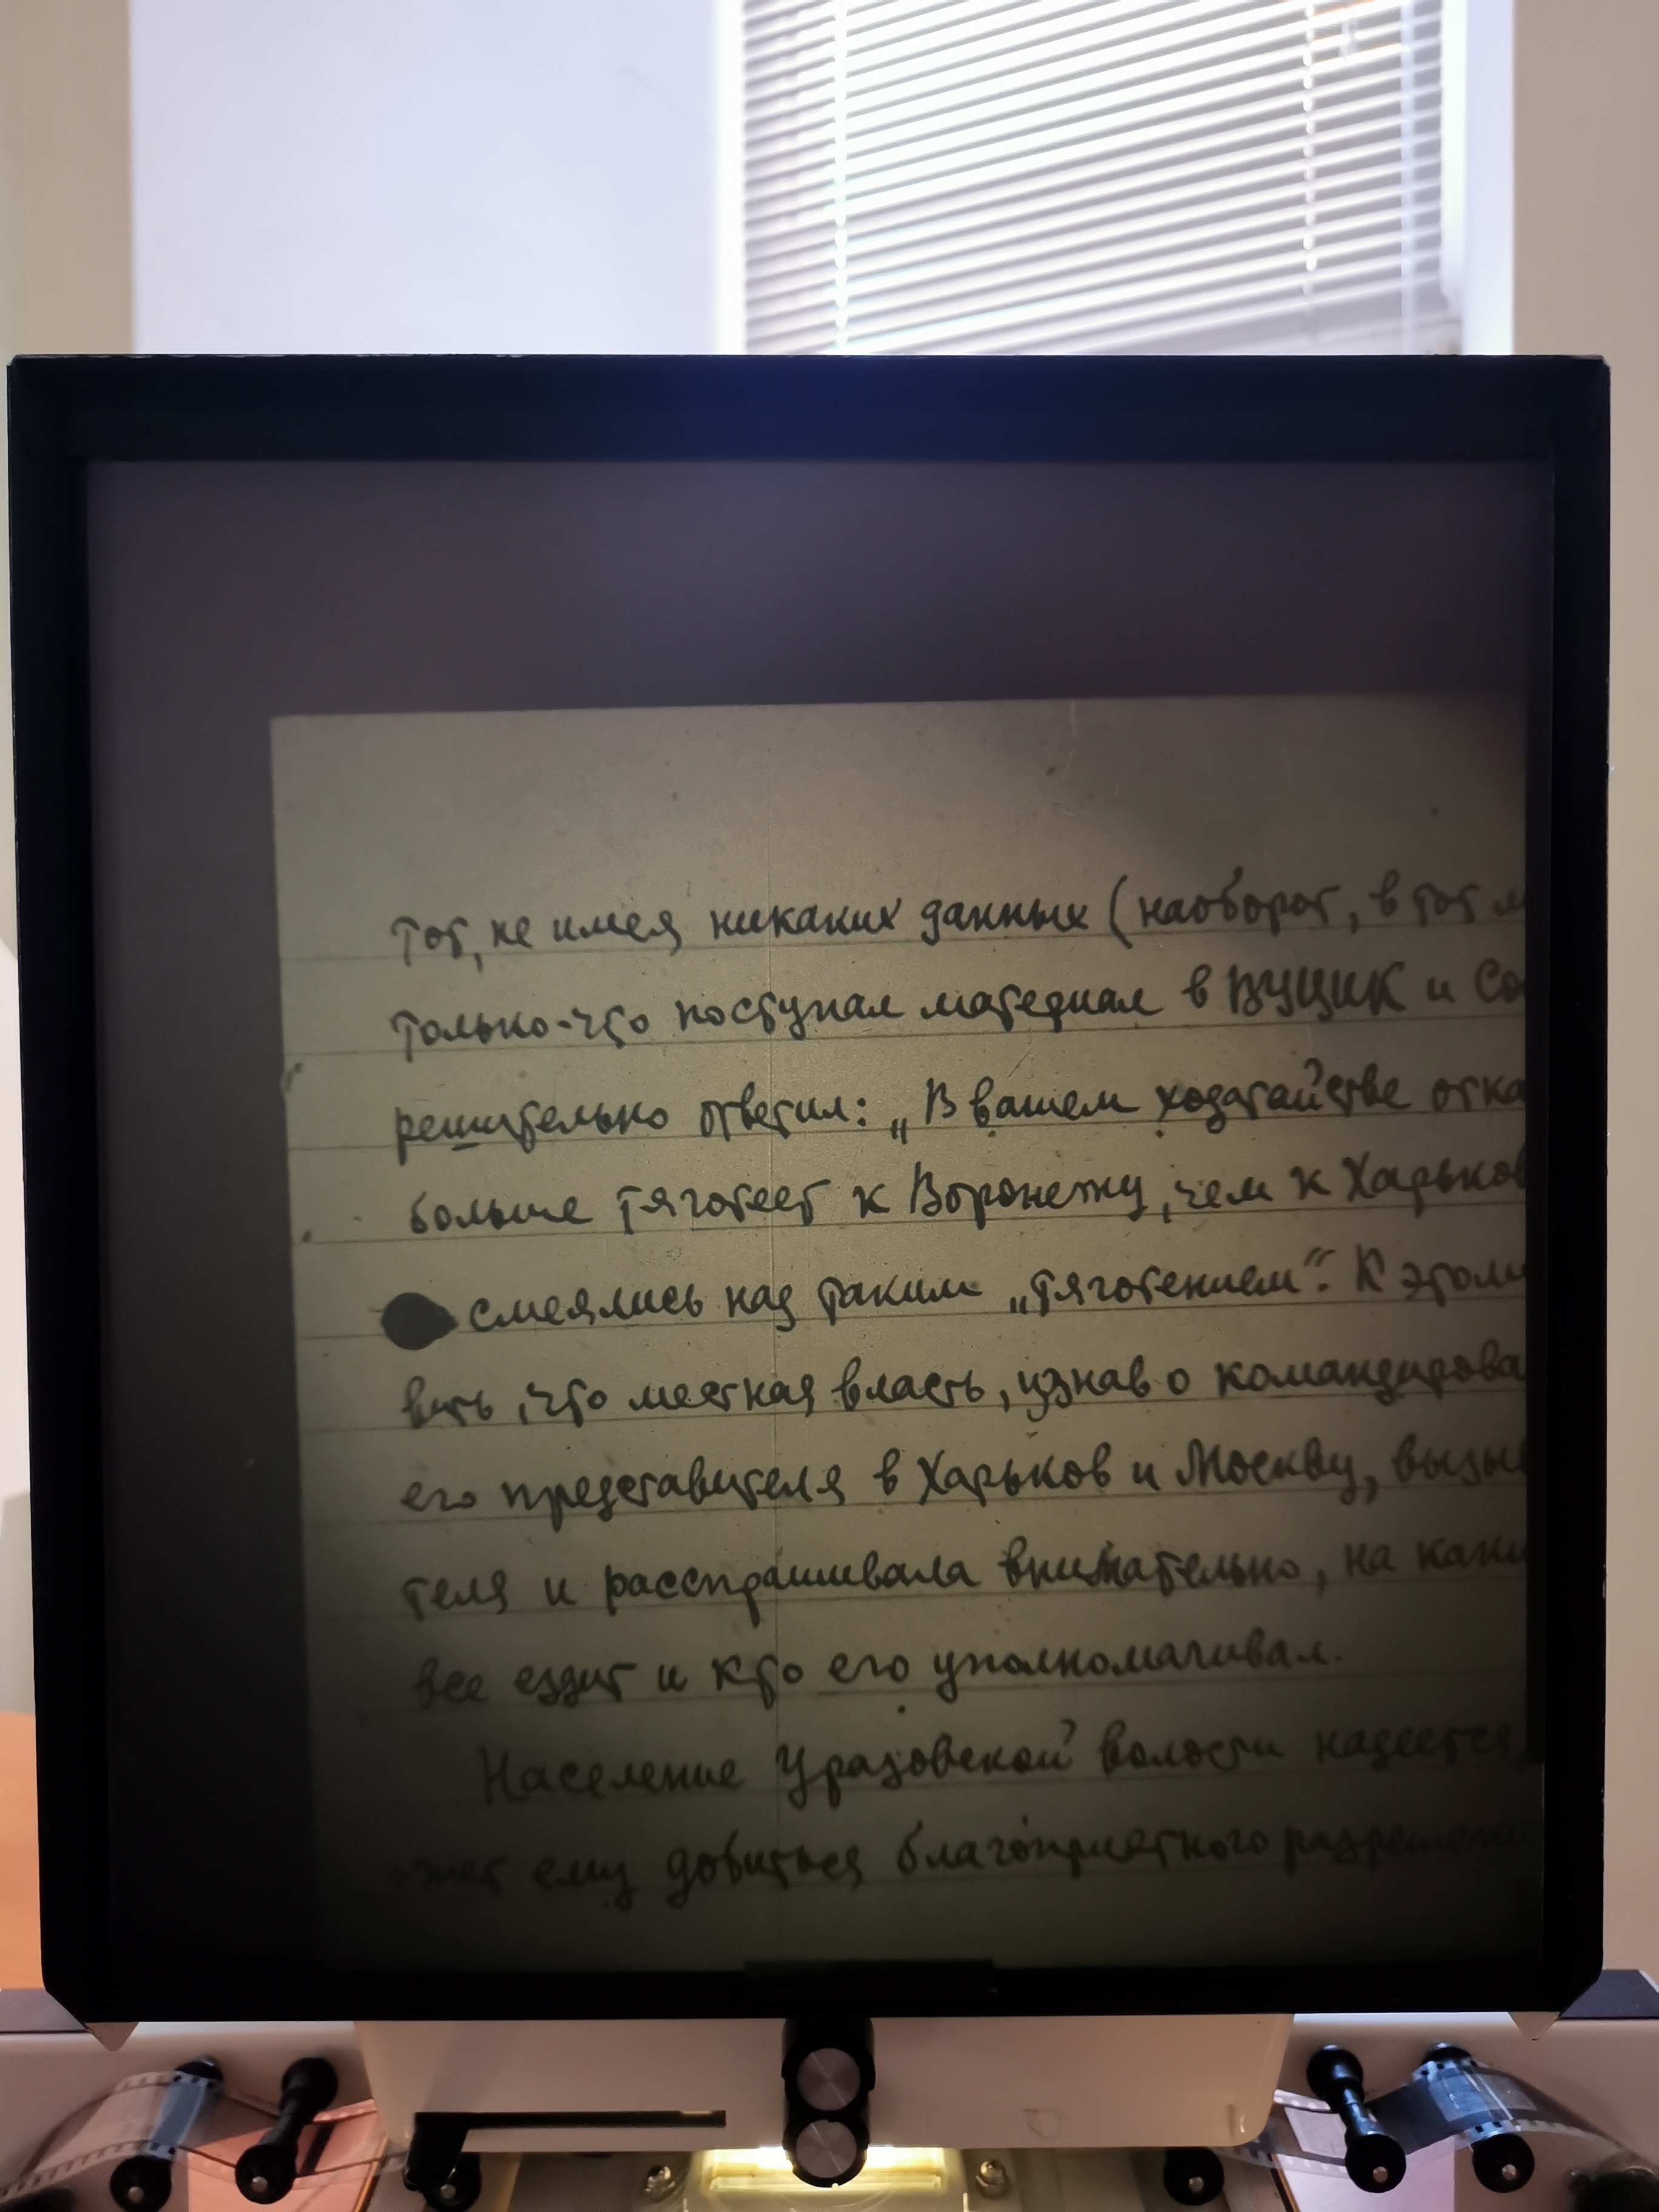 тот, не имея никаких данных (наоборот, в тот м
только-что поступил материал в ВУЦИК и Со
решительно ответил: „В вашем ходатайстве отка
больше тяготеет к Воронежу, чем к Харьков
смеялись над таким „тяготением“. К этом
вить, что местная власть, узнав о командирова
его представителя в Харьков и Москву, вызыв
теля и расспрашивала внимательно, на каки
все ездит и кто его уполномачивал.
Население Уразовской волости надеется,
жет ему добиться благоприятного разрешени